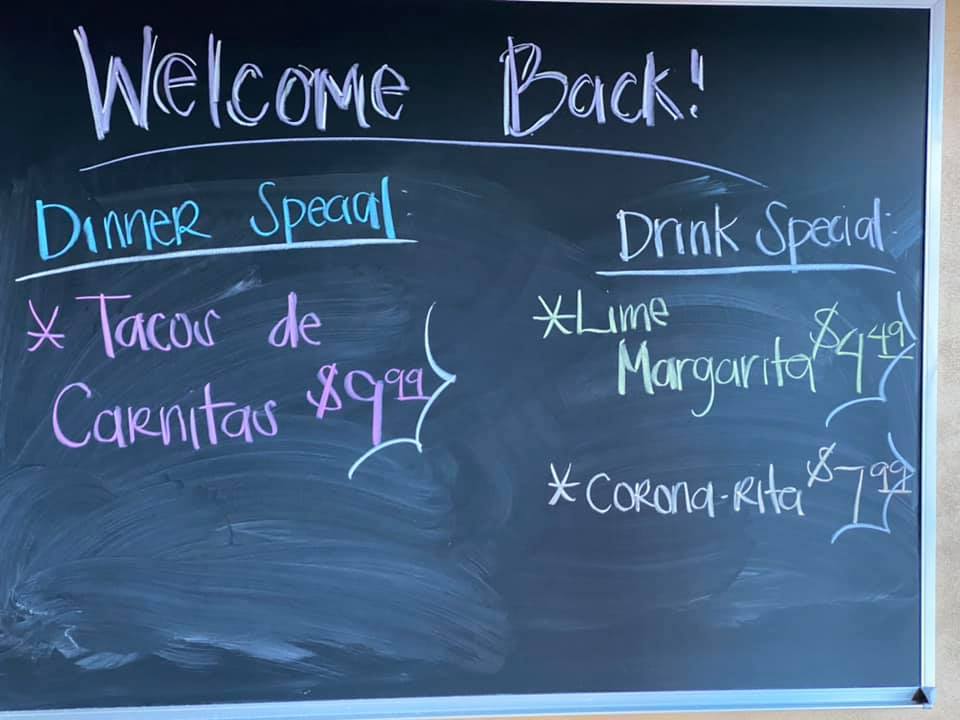 Welcome Back!
Dinner Special
* Tacos de
Carnitas $9.99
Drink Special:
* Lime
Margarita $4.49
* Corona-Rita $7.99